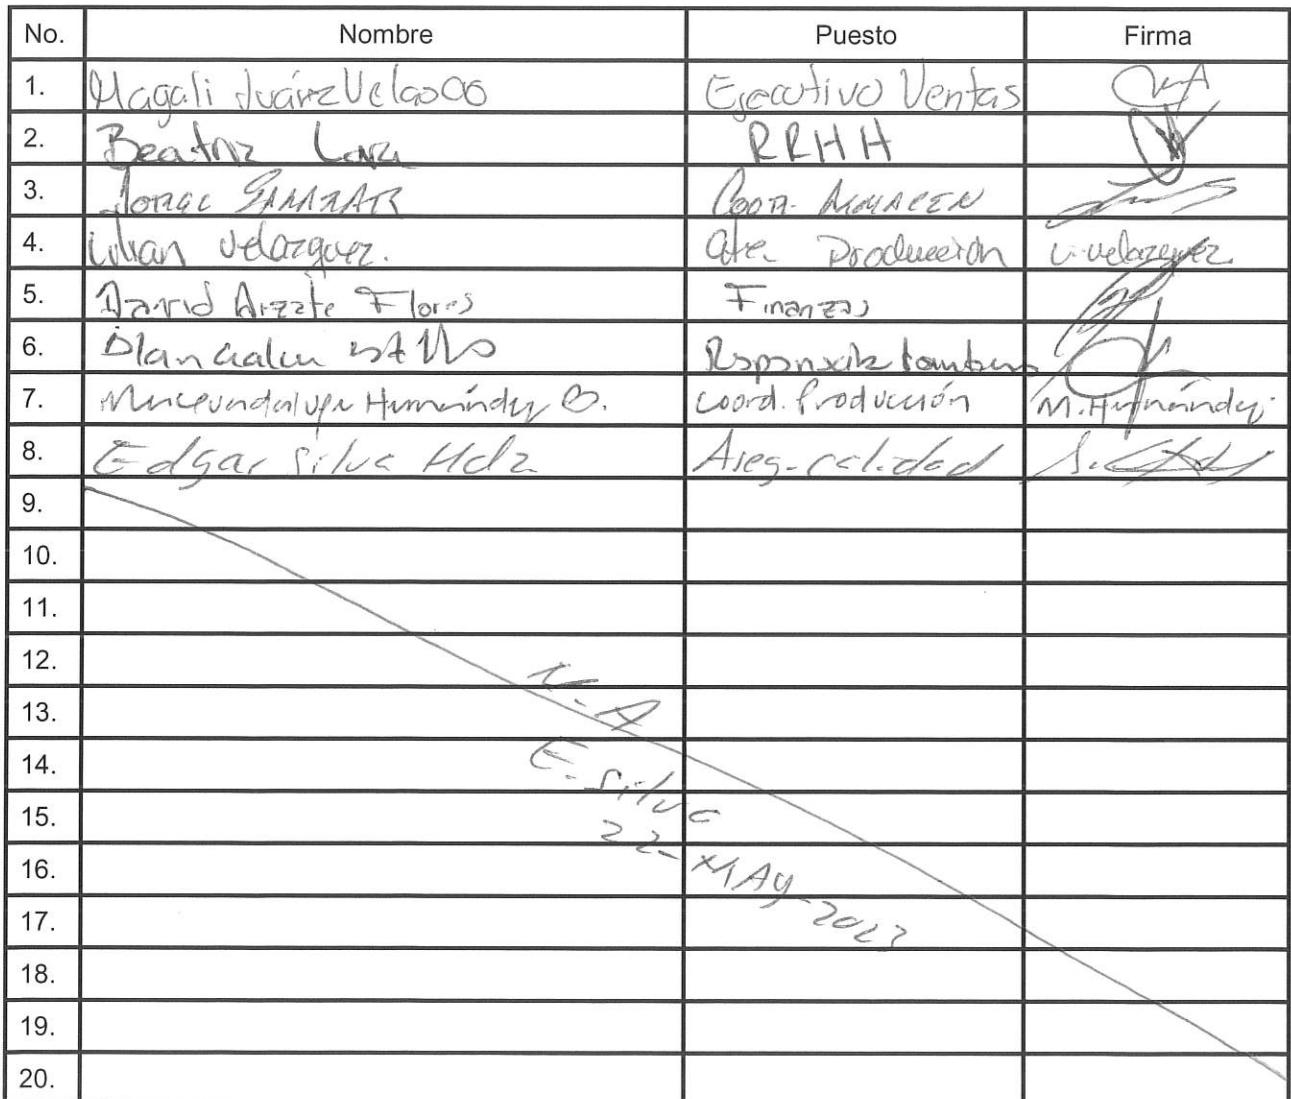 No. Nombre Puesto Firma
1. Magali Juárez Velasco Ejecutivo Ventas
2. Beatriz Lara RRHH
3. Jorge Salazar Coord. Almacen
4. Lilian Velazquez. Gte. Producción L. Velazquez.
5. David Arzate Flores Finanzas
6. Responsable
7. Hernández B. Coord. Producción M. Hernández
8. Edgar Silva Hdz Aseg. calidad
9.
10.
11.
12.
N.A
13.
14.
E. Silva
15.
22-MAy-2023
16.
17.
18.
19.
20.